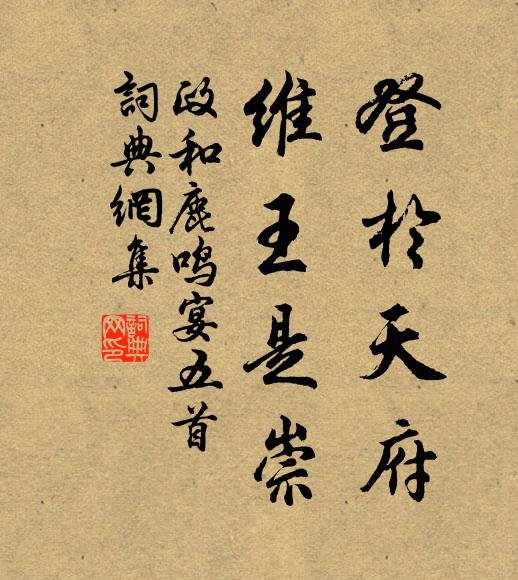 登於天府
維王是崇
政和鹿鳴宴五首
詞典網集
詞典網印